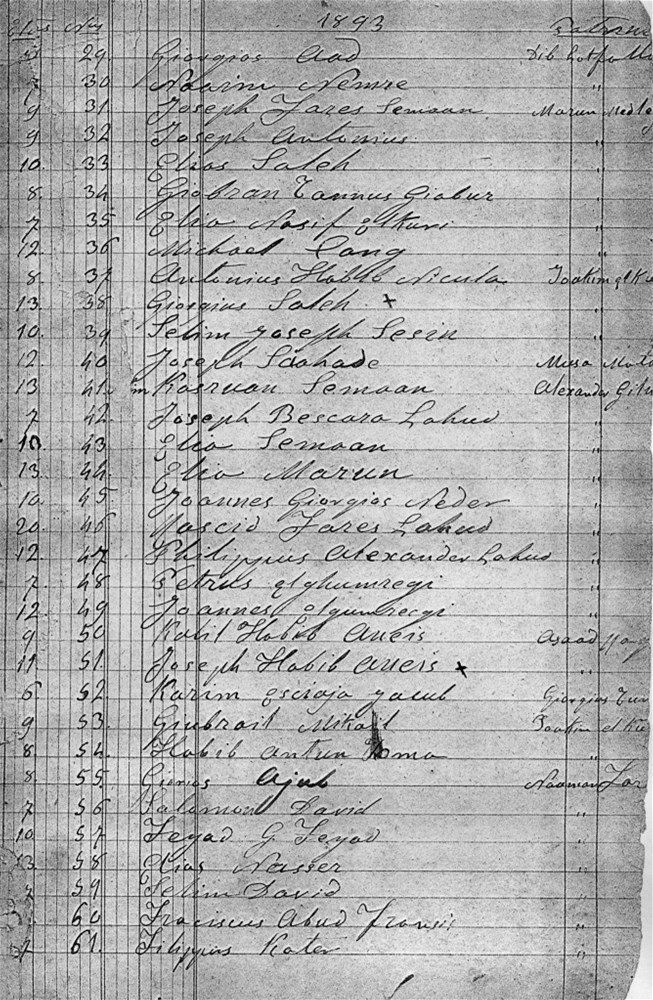 1893
Etas Nus Patrinus
29. Giorgios Aad Dib Lotfallo
7 30 Naarim Nemre "
9 31 Joseph Fares Semaan Marun
9 32 Joseph Antonius "
10. 33 Elias Saleh "
8. 34 Giobran Tannus Giabur "
7 35 Elia Nasif elkuri "
12 36 Michael "
8. 37 Antonius Habib Nicula Joakim elKu
13. 38 Giorgius Saleh x "
10. 39 Selim Joseph Sesin "
12 40 Joseph Saahade Musa
13 41. Kasruan Semaan Alexander
7 42. Joseph Bescara Lahud "
10. 43 Elia Semaan "
13. 44. Elia Marun "
10 45 Joannes Giorgios Neder "
20. 46 Nascid Fares Lahud "
12 47 Philippus Alexander Lahud "
7 48 Petrus elghumregi "
12 49 Joannes "
9 50 Kalil Habib Aueis Asaad
11 51. Joseph Habib Aueis x "
6 52. Karim Jacub Giorgios
9 53. Giubrail Mikail Joakim el Ku
8. 54. Habib Antun Toma "
8. 55. Ajub Naaman Far
7 56 Salomon David "
10 57 Feyad G Feyad "
13 58 Elias Nasser "
7 59 Selim David "
60 Fraciscus Abud Fransis "
7 61. Filippus Kater "